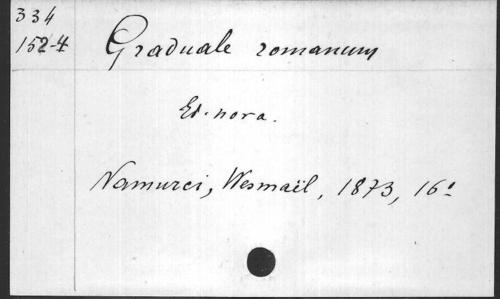 334
152-4
Graduale romanum
Ed. nova.
Namurci, Wesmaël, 1873, 16°